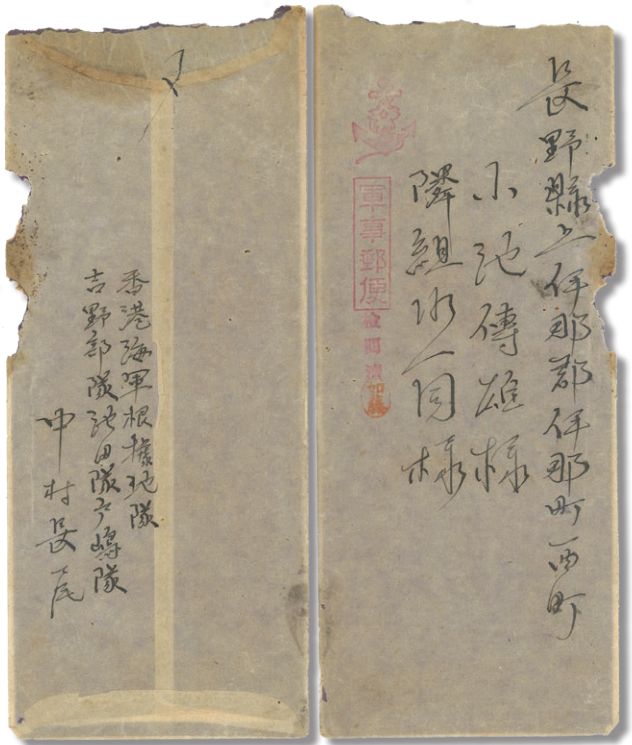 長野縣上伊那郡伊那町西町
小池傳雄様
隣組御一同様
軍事郵便
検閲済
香港海軍根據地隊
吉野部隊池田隊戸嶋隊
中村長